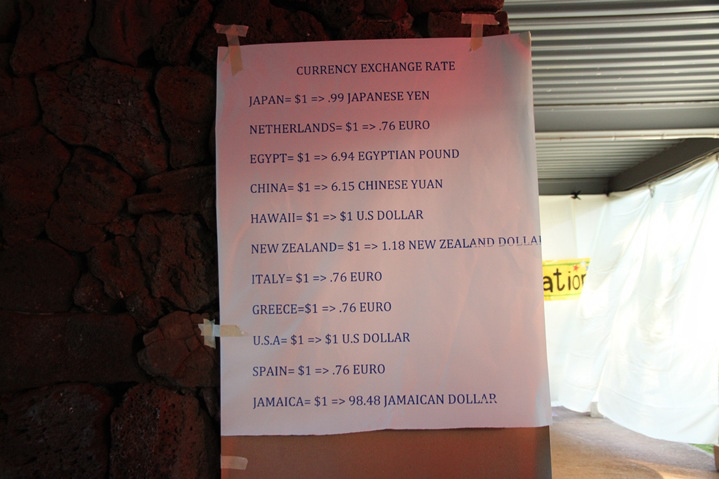 CURRENCY EXCHANGE RATE
JAPAN= $1 => .99 JAPANESE YEN
NETHERLANDS= $1 => .76 EURO
EGYPT= $1 => 6.94 EGYPTIAN POUND
CHINA= $1 => 6.15 CHINESE YUAN
HAWAII= $1 => $1 U.S DOLLAR
NEW ZEALAND= $1 => 1.18 NEW ZEALAND DOLLA
ITALY= $1 => .76 EURO
GREECE=$1 => .76 EURO
U.S.A= $1 => $1 U.S DOLLAR
SPAIN= $1 => .76 EURO
JAMAICA= $1 => 98.48 JAMAICAN DOLLAR
ation